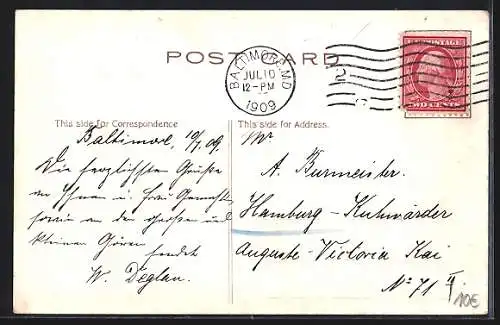 POST CARD
BALTIMORE, MD.
JUL 10
12-PM
1909
2
U.S. POSTAGE
This side for Correspondence
This side for Address.
Baltimore, 10/7. 09.
Die herzlichsten Grüße
an Ihnen u. Frau Gemahlin
sowie an den großen und
kleinen Gören
sendet
W. Deglau.
Mr
A. Burmeister.
Hamburg-Kuhwärder
Auguste-Victoria Kai
No 71 II
10€